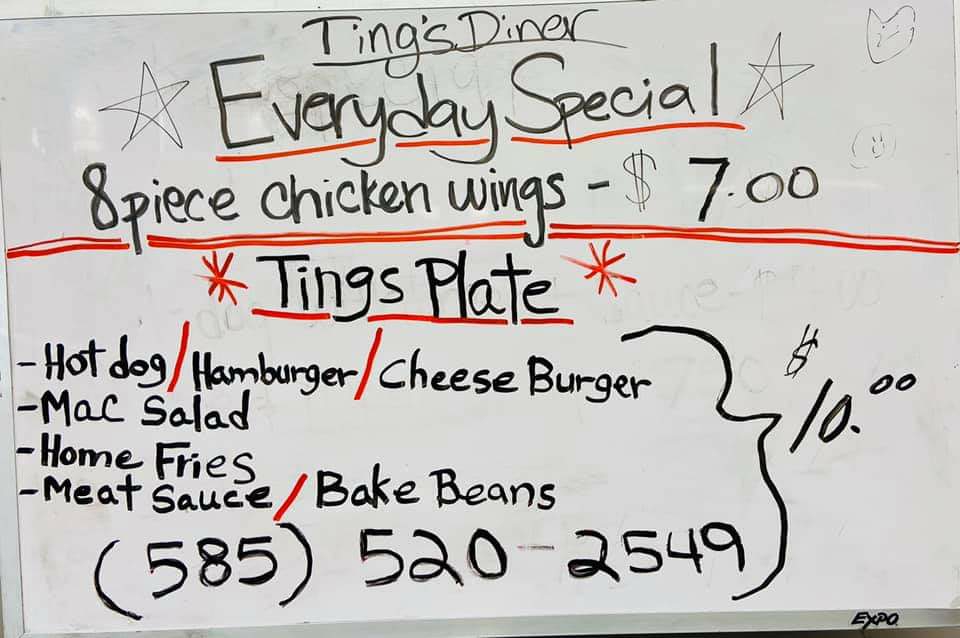 Ting's Diner
Everyday Special
8 piece chicken wings - $ 7.00
* Tings Plate *
- Hot dog / Hamburger / Cheese Burger
- Mac Salad
- Home Fries
- Meat Sauce / Bake Beans
$ 10.00
(585) 520-2549
EXPO